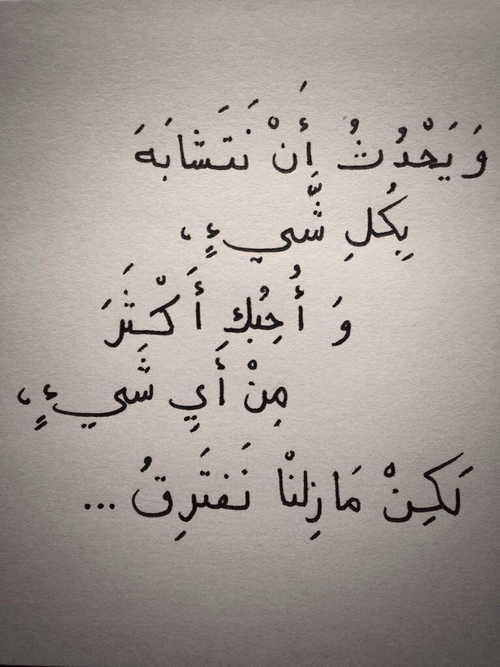 وَيَحْدُثُ أَنْ نَتَشَابَهَ
بِكُلِ شَّيءٍ،
وَ أُحِبُكِ أَكْثَرَ
مِنْ أَيِ شَّيءٍ،
لَكِنْ مَازِلنْا نَفتَرِقُ ...